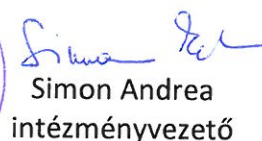 Simon Andrea
intézményvezető